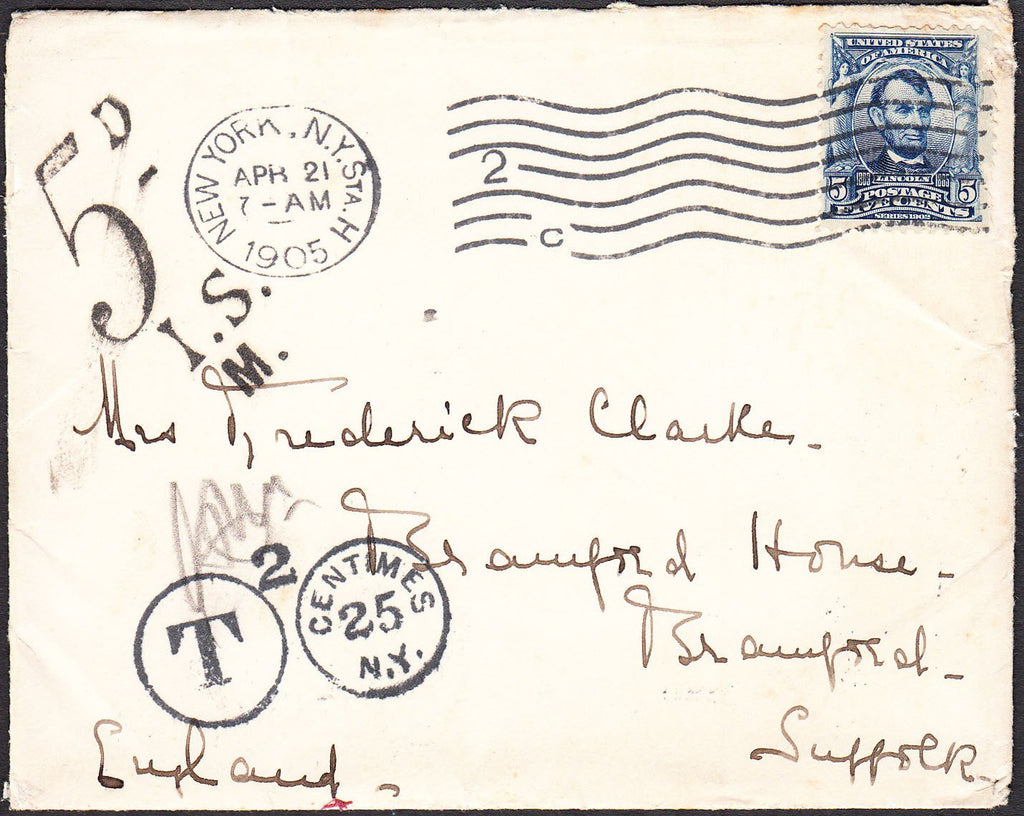 UNITED STATES
OF AMERICA
1809 LINCOLN 1865
5 POSTAGE 5
FIVE CENTS
SERIES 1902
5D.
NEW YORK, N.Y. STA. H
APR 21
7-AM
1905
2
C
I.S.
M.
Mrs Frederick Clarke.
Bramford House.
Bramford.
Suffolk.
England.
2
T
CENTIMES
25
N.Y.